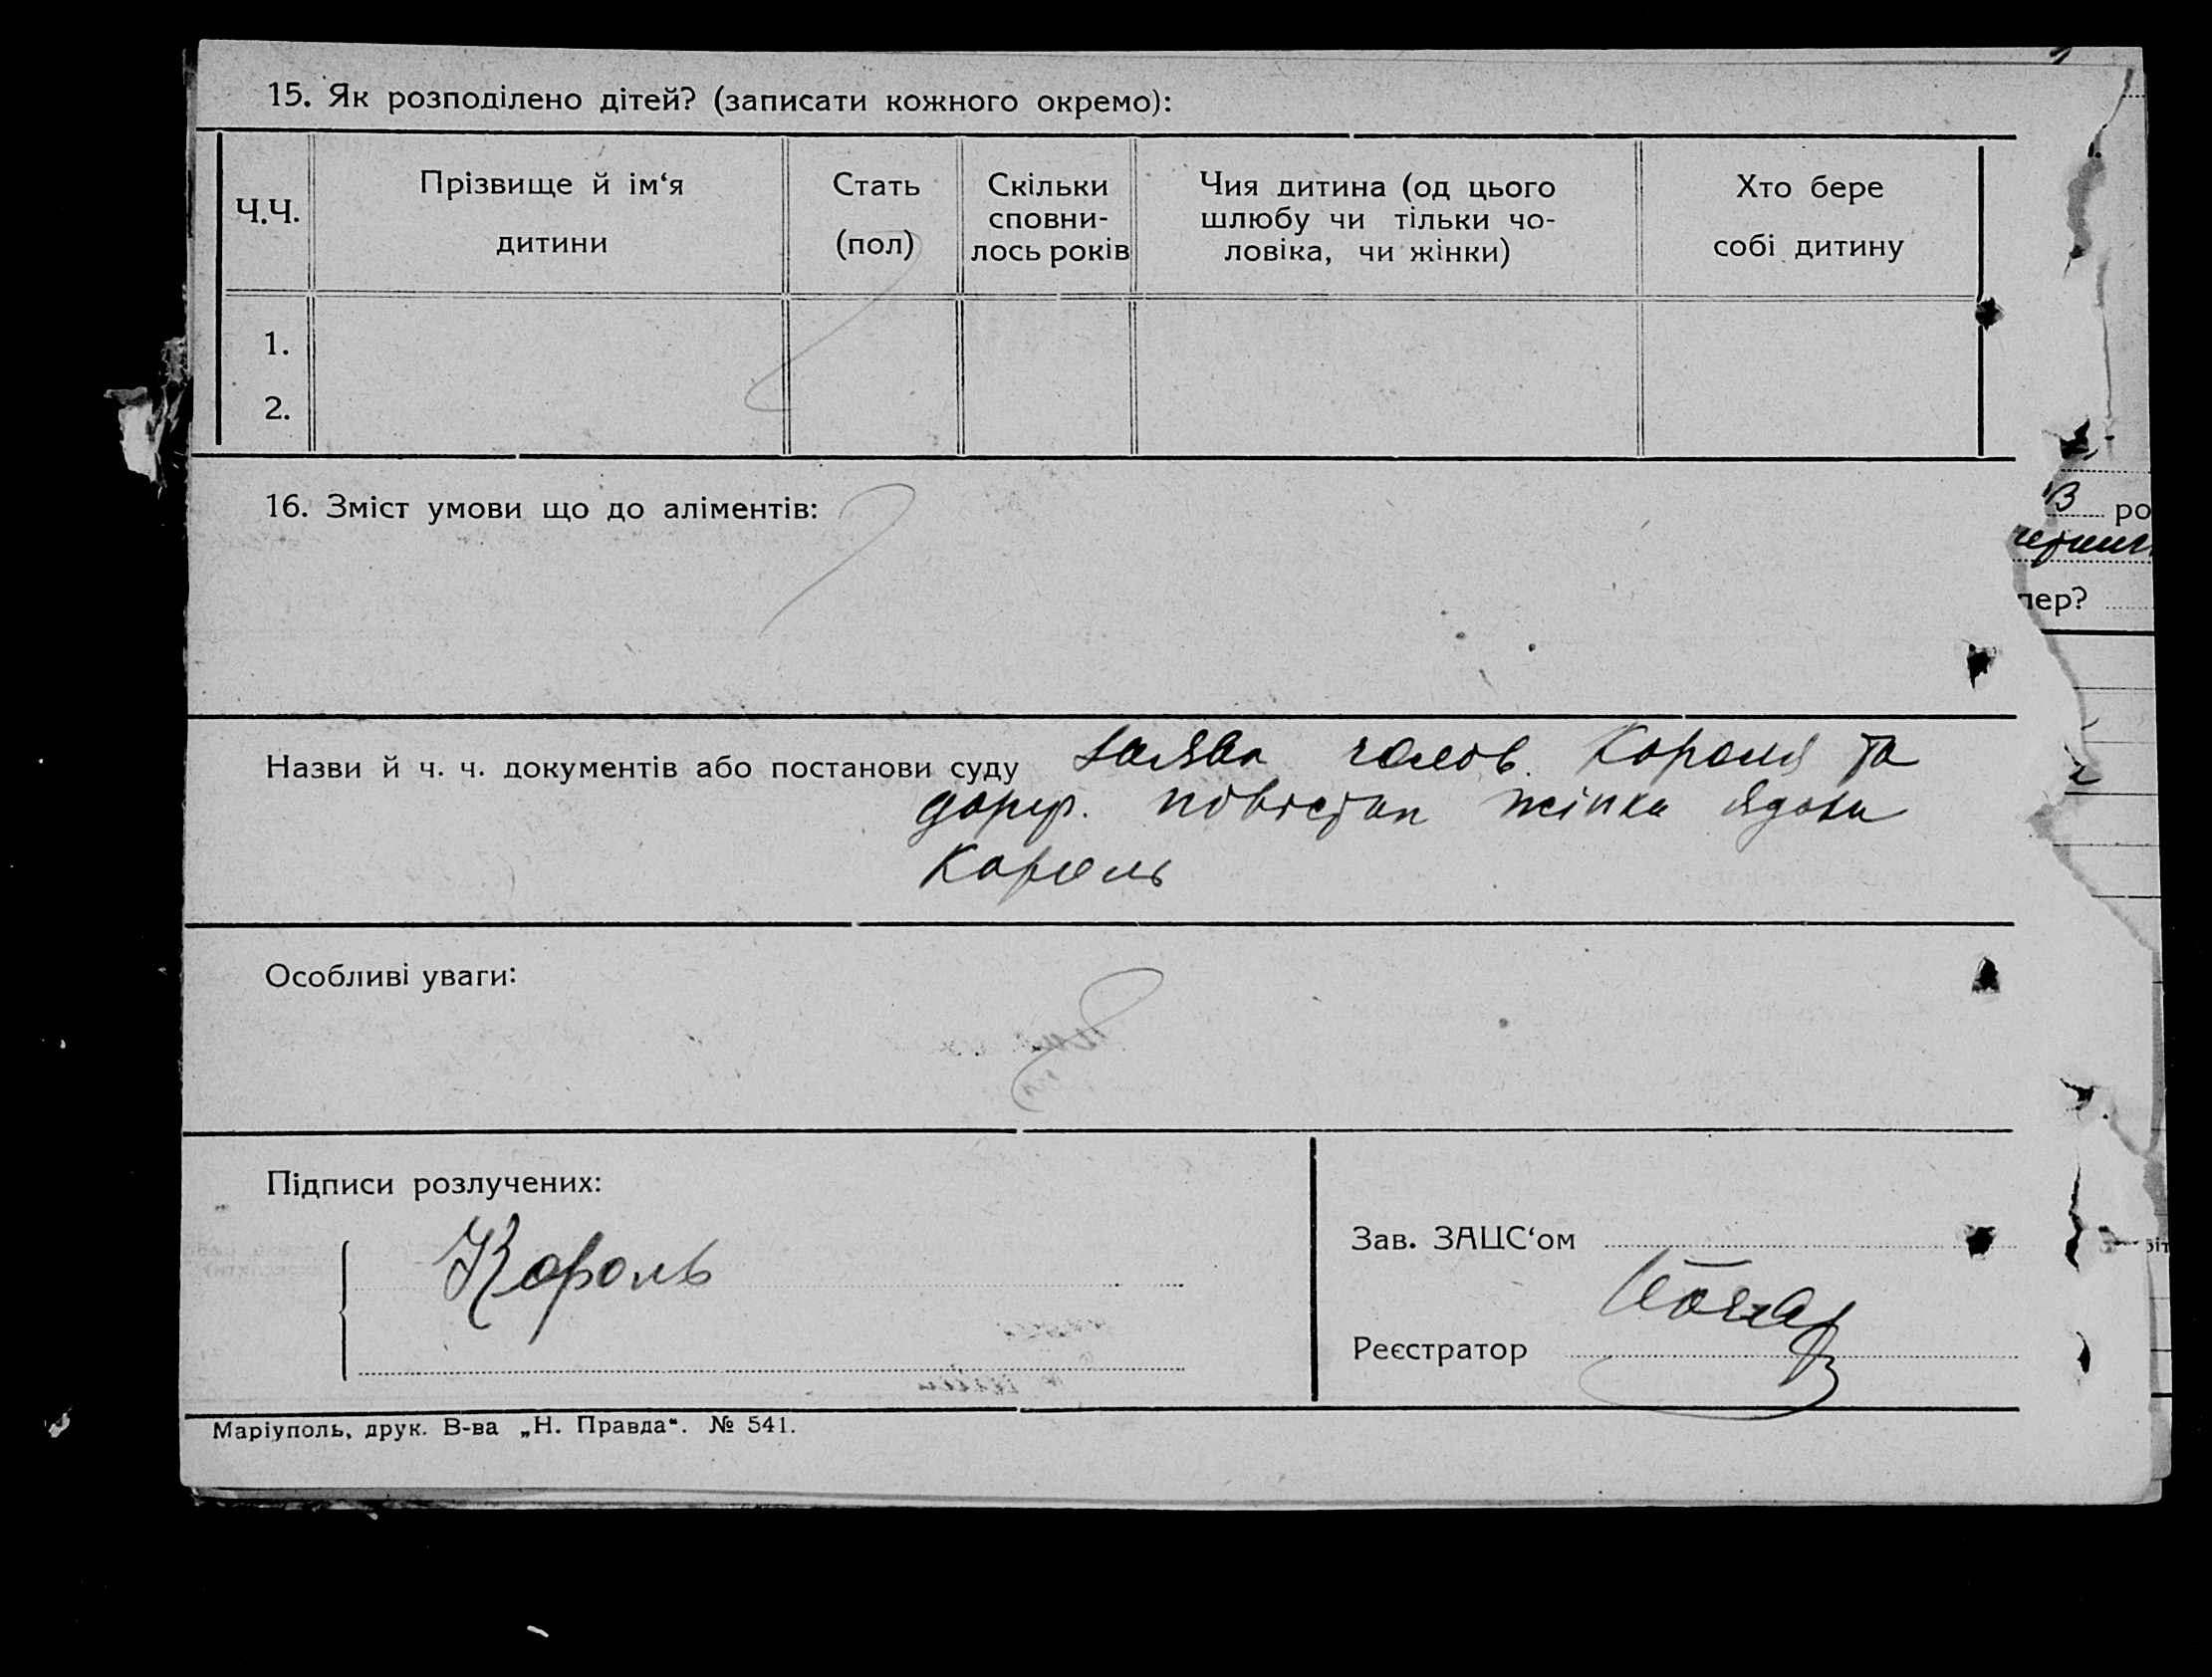 15. Як розподілено дітей? (записати кожного окремо):
Ч.Ч.
Прізвище й ім‘я
дитини
Стать
(пол)
Скільки
сповни-
лось років
Чия дитина (од цього
шлюбу чи тільки чо-
ловіка, чи жінки)
Хто бере
собі дитину
1.
2.
16. Зміст умови що до аліментів:
В ро
пер?
Назви й ч. ч. документів або постанови суду заява чолов. Короля та
жінки
Король
Особливі уваги:
Підписи розлучених:
Король
Зав. ЗАЦС‘ом
Реєстратор
Маріуполь, друк. В-ва „Н. Правда“. № 541.